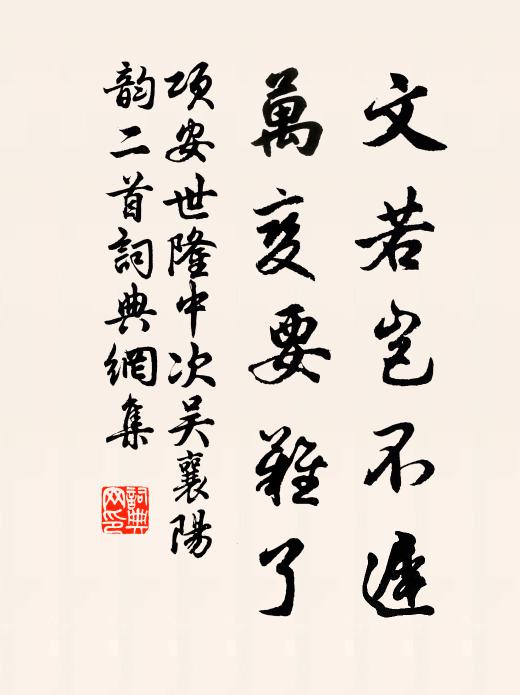 文若豈不遲
萬变要難了
項安世隆中次吴襄陽
韵二首詞典網集
詞典
网印